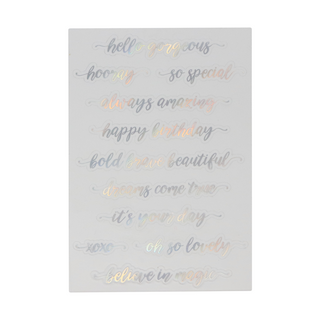 hello gorgeous
hooray so special
always amazing
happy birthday
bold brave beautiful
dreams come true
it's your day
xoxo oh so lovely
believe in magic